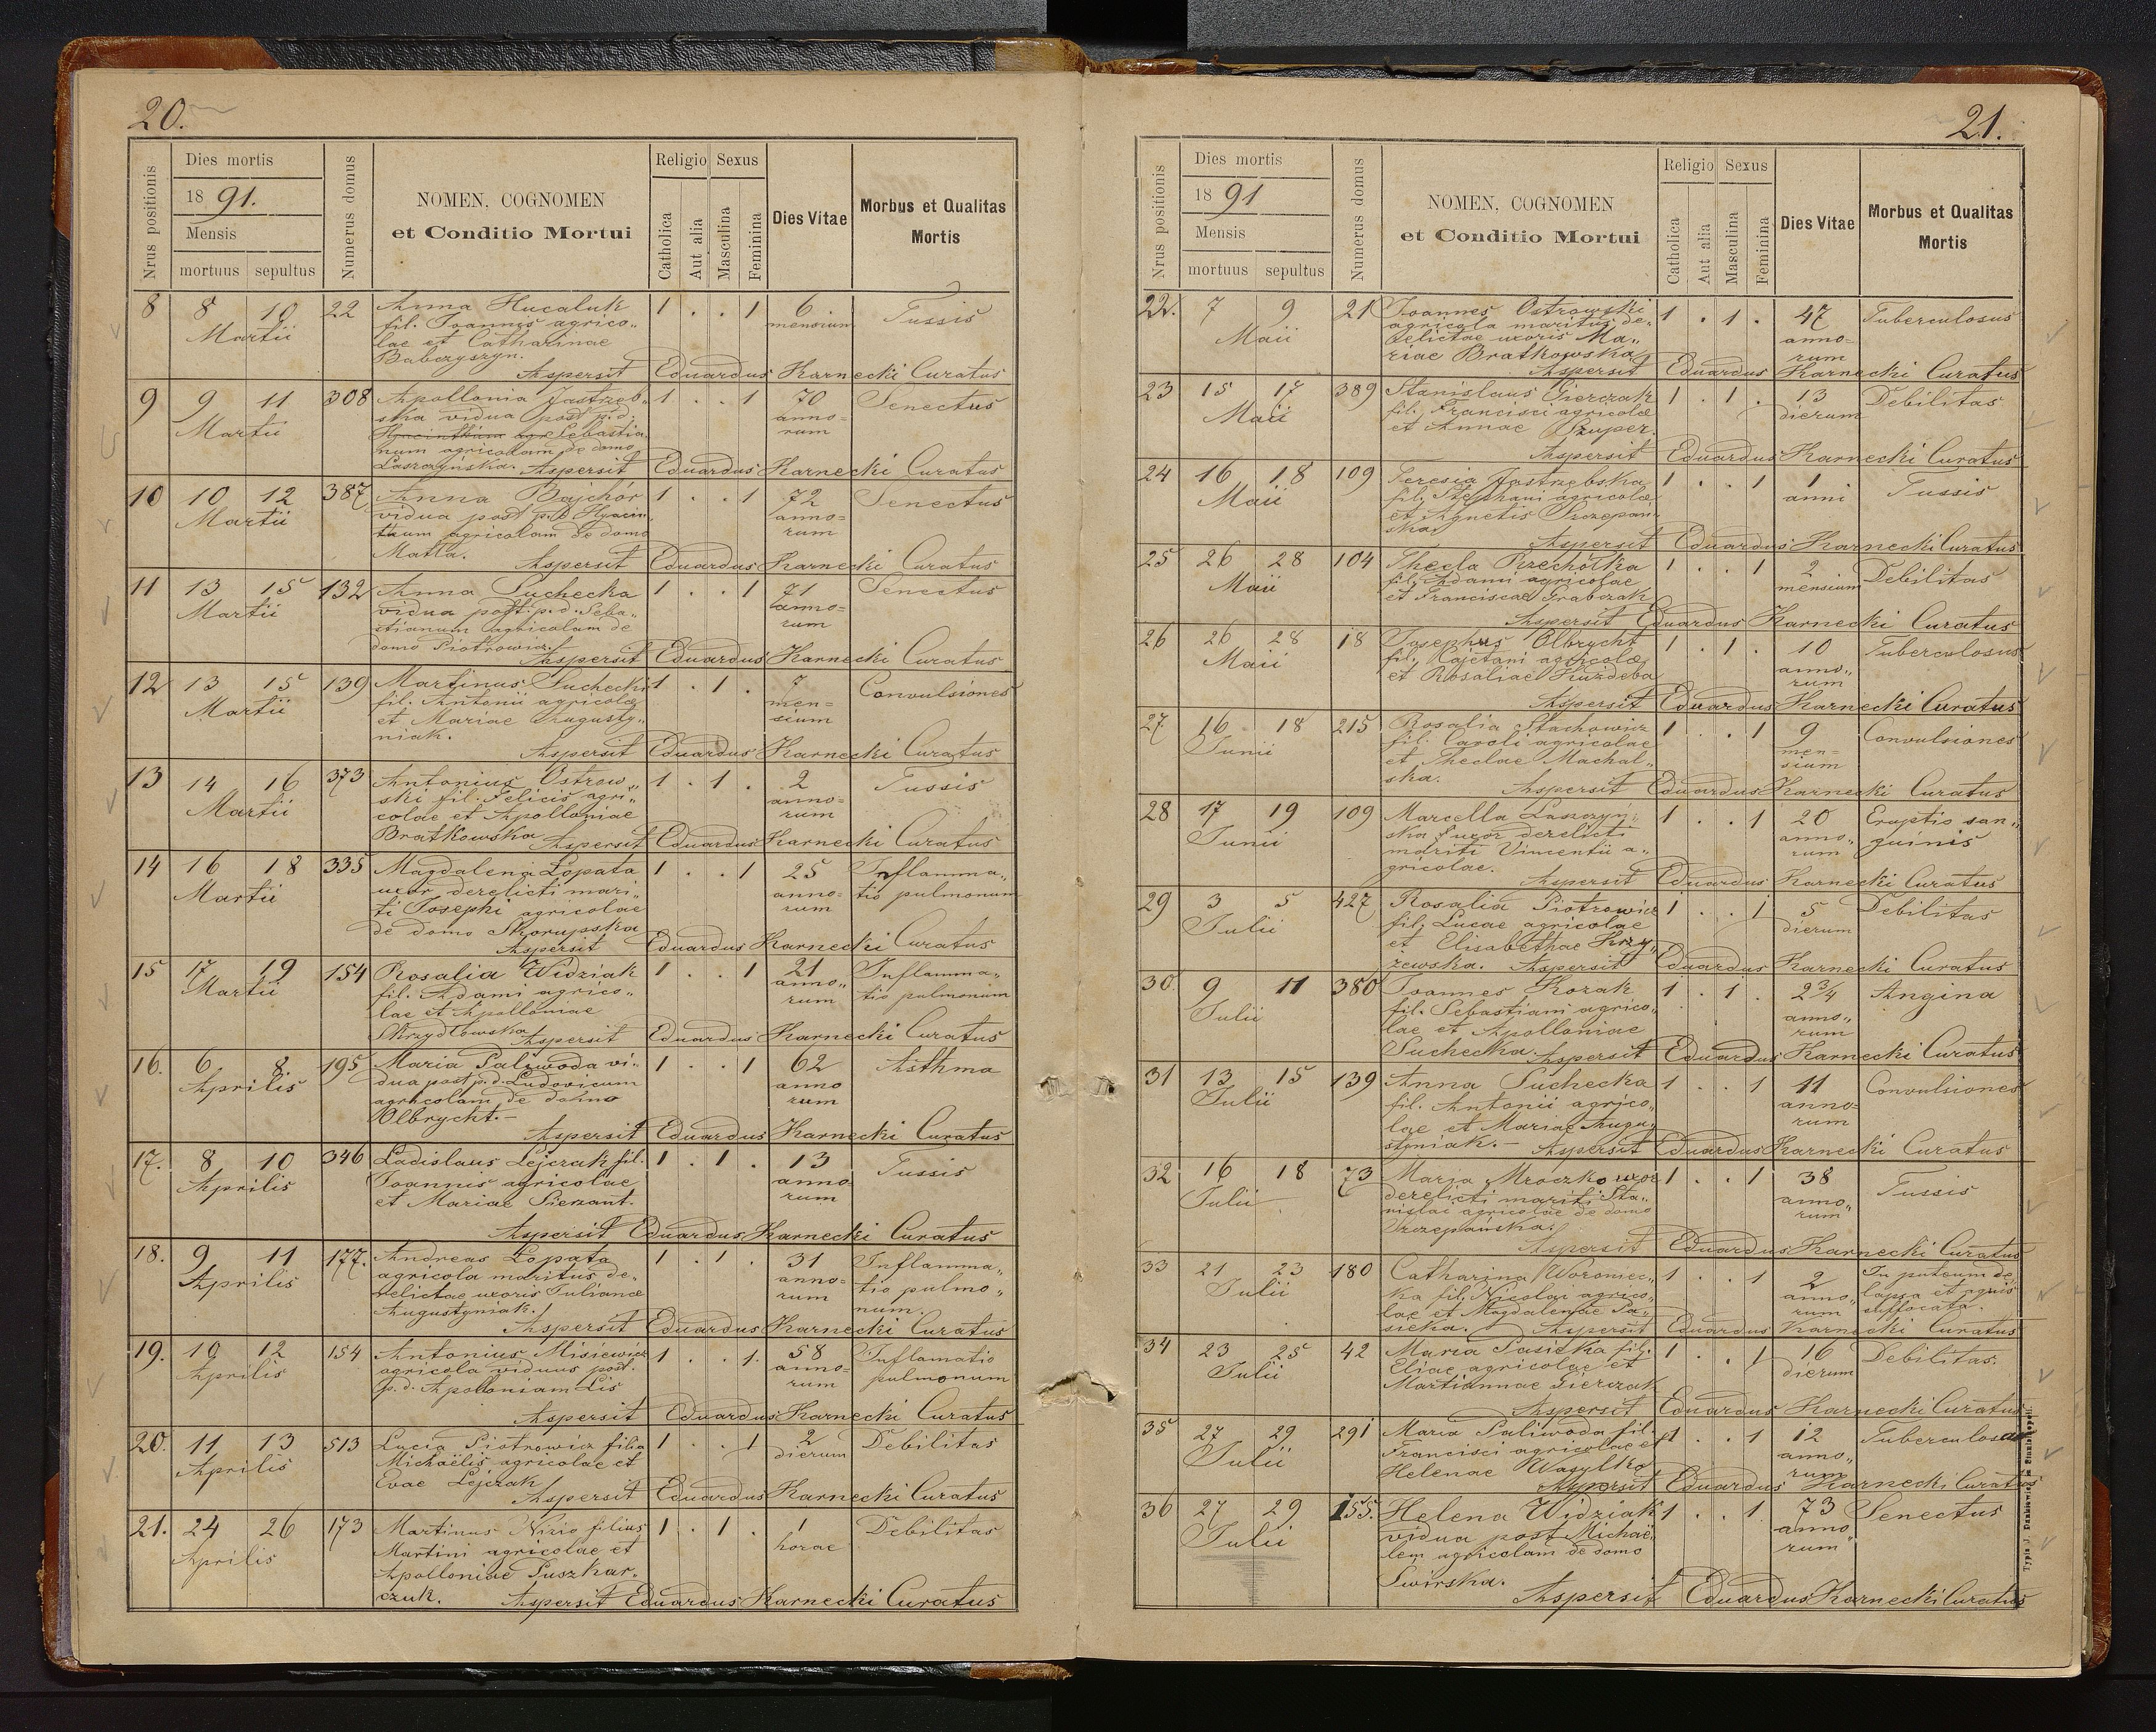 20.
Nrus positionis
Dies mortis
1891.
Mensis
mortuus sepultus
Numerus domus
NOMEN, COGNOMEN
et Conditio Mortui
Religio Sexus
Catholica
Aut alia
Masculina
Feminina
Dies Vitae
Morbus et Qualitas
Mortis
8 8 10 22 Anna Hucaluk 1 . . 1 6 Tussis
Martii fil. Joannis agrico„ mensium
lae et Catharinae
Babczyszyn.
Aspersit Eduardus Karnecki Curatus
9 9 11 308 Apollonia Jastrzęb„ 1 . . 1 70 Senectus
Martii ska vidua post p. d. anno=
Hyacinthum agr Sebastia„ rum
num agricolam de domo
Laszczyńska. Aspersit Eduardus Karnecki Curatus
10 10 12 387 Anna Bajchór 1 . . 1 72 Senectus
Martii vidua post p. d. Hyacin„ anno=
thum agricolam de domo rum
Matla.
Aspersit Eduardus Karnecki Curatus
11 13 15 132 Anna Suchecka 1 . . 1 71 Senectus
Martii vidua post. p. d. Seba„ anno=
stianum agricolam de rum
domo Piotrowicz.
Aspersit Eduardus Karnecki Curatus
12 13 15 139 Martinus Suchecki 1 . 1 . 7 Convulsiones
Martii fil. Antonii agricolae men=
et Mariae Augusty„ sium
niak.
Aspersit Eduardus Karnecki Curatus
13 14 16 373 Antonius Ostrow„ 1 . 1 . 2 Tussis
Martii ski fil. Felicis agri„ anno=
colae et Apolloniae rum
Bratkowska Aspersit Eduardus Karnecki Curatus
14 16 18 335 Magdalena Łopata 1 . . 1 25 Inflamma„
Martii uxor derelicti mari„ anno= tio pulmonum
ti Josephi agricolae rum
de domo Skorupska
Aspersit Eduardus Karnecki Curatus
15 17 19 154 Rosalia Widziak 1 . . 1 21 Inflamma„
Martii fil. Adami agrico„ anno„ tio pulmonum
lae et Apolloniae rum
Skrzydłowska Aspersit Eduardus Karnecki Curatus
16. 6 8. 195 Maria Paliwoda vi„ 1 . . 1 62 Asthma
Aprilis dua post p. d. Ludovicum anno
agricolam de domo rum
Olbrycht.—
Aspersit Eduardus Karnecki Curatus
17. 8 10 346 Ladislaus Lejczak fil. 1 . 1 . 13 Tussis
Aprilis Joannis agricolae anno=
et Mariae rum
Aspersit Eduardus Karnecki Curatus
18. 9 11 177. Andreas Łopata 1 . 1 . 31 Inflamma„
Aprilis agricola maritus de„ anno= tio pulmo„
relictae uxoris Julianae rum num.
Augustyniak.
Aspersit Eduardus Karnecki Curatus
19. 10 12 154 Antonius Misiewicz 1 . . 1. 58 Inflamatio
Aprilis agricola viduus post. anno= pulmonum
p. d. Apolloniam Lis rum
Aspersit Eduardus Karnecki Curatus
20. 11 13 513 Lucia Piotrowicz filia 1 . . 1 2 Debilitas
Aprilis Michaëlis agricolae et dierum
Evae Lejczak
Aspersit Eduardus Karnecki Curatus
21. 24 26 173 Martinus Nizio filius 1 . 1 . 1 Debilitas
Aprilis Martini agricolae et horae
Apolloniae Puszkar„
czuk. Aspersit Eduardus Karnecki Curatus
21.
Nrus positionis
Dies mortis
1891
Mensis
mortuus sepultus
Numerus domus
NOMEN, COGNOMEN
et Conditio Mortui
Religio Sexus
Catholica
Aut alia
Masculina
Feminina
Dies Vitae
Morbus et Qualitas
Mortis
22. 7 9 21 Joannes Ostrowski 1 . 1 . 47 Tuberculosus
Maii agricola maritus de„ anno=
relictae uxoris Ma„ rum
riae Bratkowska
Aspersit Eduardus Karnecki Curatus
23 15 17 389 Stanislaus Gierczak 1 . 1 . 13 Debilitas
Maii fil. Francisci agricolae dierum
et Annae Szuper.
Aspersit Eduardus Karnecki Curatus
24 16 18 109 Teresia Jastrzębska 1 . . 1 1 Tussis
Maii fil. Stephani agricolae anni
et Agnetis Szczepań„
ska
Aspersit Eduardus Karnecki Curatus
25 26 28 104 Thecla Rzechółka 1 . . 1 2 Debilitas
Maii fil. Adami agricolae mensium
et Franciscae Grabczak
Aspersit Eduardus Karnecki Curatus
26 26 28 18 Josephus Olbrycht 1 . 1 . 10 Tuberculosus
Maii fil. Kajetani agricolae anno„
et Rosaliae Kuzdeba rum
Aspersit Eduardus Karnecki Curatus
27 16 18 215 Rosalia Stachowicz 1 . . 1 9 Convulsiones
Junii fil. Caroli agricolae men=
et Theclae Machal„ sium
ska.
Aspersit Eduardus Karnecki Curatus
28 17 19 109 Marcella Laszczyń„ 1 . . 1 20 Eruptio san„
Junii ska uxor derelicti anno„ guinis
mariti Vincentii a„ rum
gricolae.
Aspersit Eduardus Karnecki Curatus
29 3 5 427 Rosalia Piotrowicz 1 . . 1 5 Debilitas
Julii fil. Lucae agricolae dierum
et Elisabethae Krzy„
żewska. Aspersit Eduardus Karnecki Curatus
30 9 11 380 Joannes Kozak 1 . 1 . 2¾ Angina
Julii fil. Sebastiani agrico„ anno„
lae et Apolloniae rum
Suchecka. Aspersit Eduardus Karnecki Curatus
31 13 15 139 Anna Suchecka 1 . . 1 11 Convulsiones
Julii fil. Antonii agrico„ anno=
lae et Mariae Augu„ rum
styniak.— Aspersit Eduardus Karnecki Curatus
32 16 18 73 Maria Mroczko uxor 1 . . 1 38 Tussis
Julii derelicti mariti Sta„ anno„
nislai agricolae de domo rum
Szczepańska.
Aspersit Eduardus Karnecki Curatus
33 21 23 180 Catharina Woroniec„ 1 . . 1 2 In puteum de„
Julii ka fil. Nicolai agrico„ anno„ lapsa et aquis
lae et Magdalenae Pa„ rum suffocata.
sieka. Aspersit Eduardus Karnecki Curatus
34 23 25 42 Maria Pasieka fil. 1 . . 1 16 Debilitas.
Julii Eliae agricolae et dierum
Martiannae Gierczak
Aspersit Eduardus Karnecki Curatus
35 27 29 291 Maria Paliwoda fil. 1 . . 1 12 Tuberculosa
Julii Francisci agricolae et anno„
Helenae Wasylko rum
Aspersit Eduardus Karnecki Curatus
36 27 29 155. Helena Widziak 1 . . 1 73 Senectus
Julii vidua post Michaë„ anno„
lem agricolam de domo rum
Świrska.
Aspersit Eduardus Karnecki Curatus